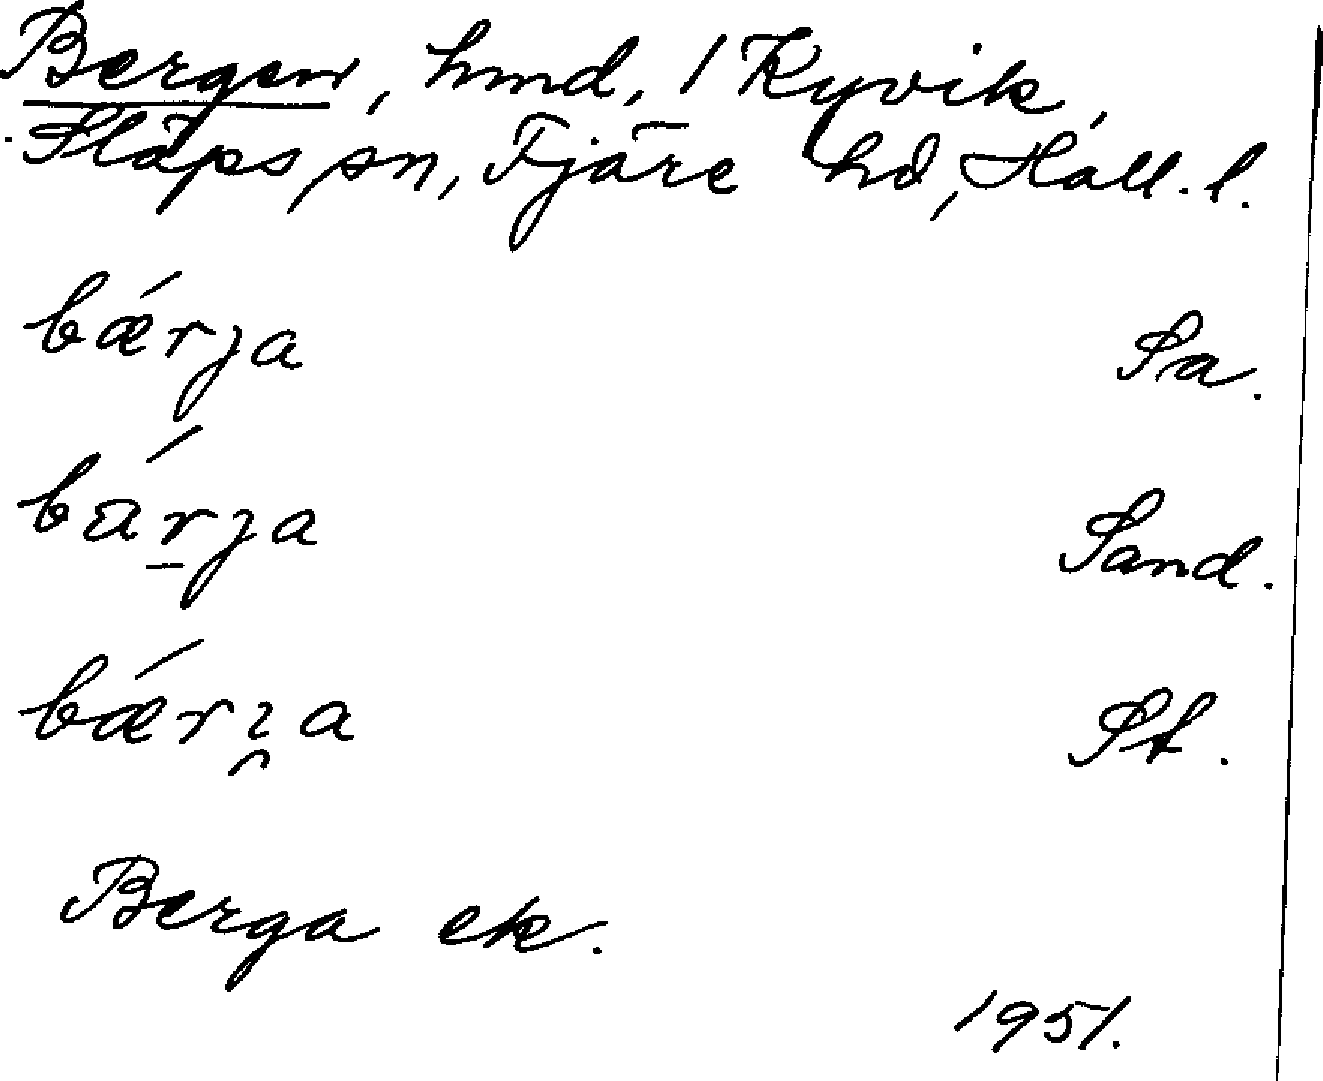 Bergen, hmd, 1 Kyvik,
Släps sn, Fjäre hd, Hall. l.
bǽrja Sa.
bárja Sand.
bǽrɪ̯a St.
Berga ek.
1951.